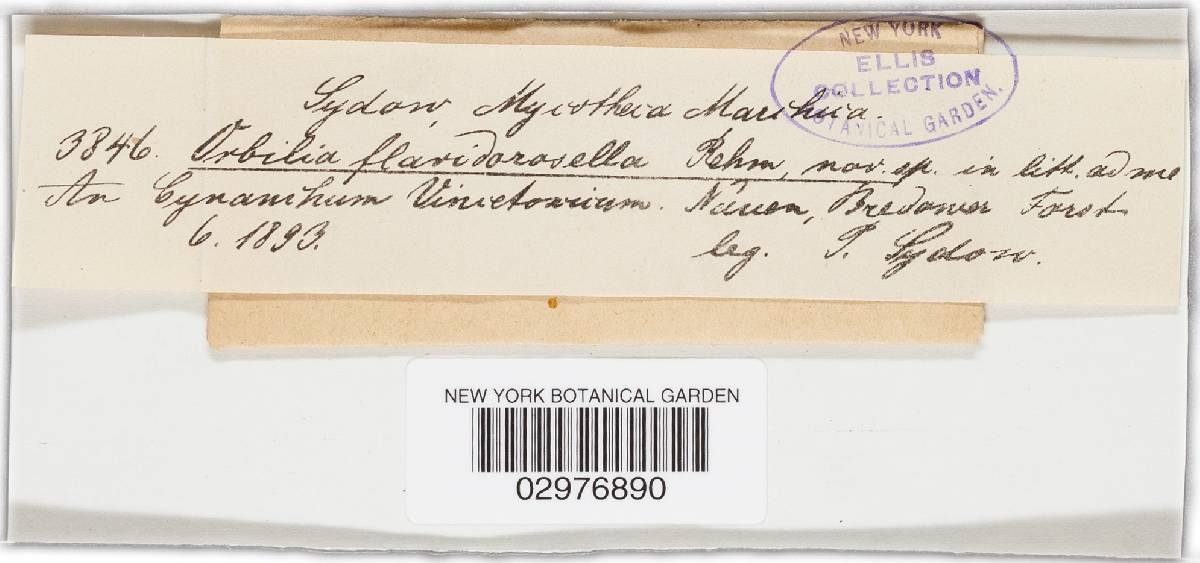 NEW YORK
ELLIS
COLLECTION
BOTANICAL GARDEN.
Sydow, Mycotheca Marchica.
3846. Orbilia flavidorosella Rehm, nov. sp. in litt. ad me
An Cynanchum Vincetoxicum. Nauen, Bredower Forst
6. 1893. leg. P. Sydow.
NEW YORK BOTANICAL GARDEN
02976890